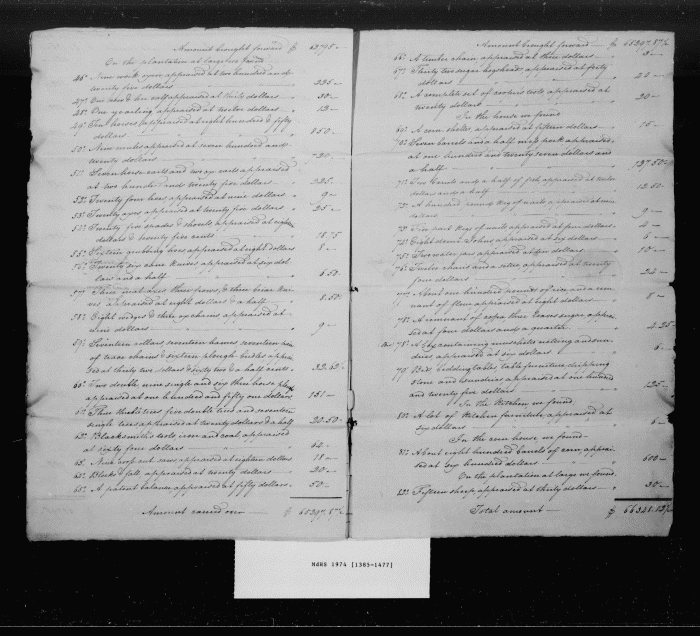 Amount brought forward $ 63795-
On the plantation at large we found
46th Nine work oxen appraised at two hundred and
twenty five dollars 225-
47th One cow & her calf appraised at thirty dollars 30-
48th One yearling appraised at twelve dollars 12-
49th Ten horses appraised at eight hundred & fifty
dollars 850-
50th Nine mules appraised at seven hundred and
twenty dollars 720-
51st Seven horse carts and two ox carts appraised
at two hundred and twenty five dollars 225-
52d Twenty four hoes appraised at nine dollars 9-
53d Twenty axes appraised at twenty five dollars 25-
54th Twenty five spades & shovels appraised at eighteen
dollars & seventy five cents 18.75
55th Sixteen grubbing hoes appraised at eight dollars 8-
56th Twenty six cane knives appraised at six dol
lars and a half 6.50
57th Three broad axes, three froes, & three draw kni
ves, appraised at eight dollars & a half 8.50
58th Eight wedges & three ox chains appraised at
nine dollars 9-
59th Seventeen collars, seventeen hames, seventeen pair
of trace chains & sixteen plough bridles appra
ised at thirty two dollars & sixty two & a half cents 32.62½
60th Two double, nine single and six three horse ploughs
appraised at one hundred and fifty one dollars 151-
61st Three three trees five double trees and seventeen
single trees, appraised at twenty dollars & a half 20.50
62d Blacksmith's tools, iron and coal, appraised
at sixty four dollars 64-
63d Nine crop cut saws appraised at eighteen dollars 18-
64th Blocks & fall appraised at twenty dollars 20-
65th A patent balance appraised at fifty dollars 50-
Amount carried over $ 65297.87½
Amount brought forward $ 65297.87½
66th A timber chain appraised at three dollars 3-
67th Thirty two sugar hogsheads appraised at forty
dollars
68th A complete set of cooper's tools appraised at
twenty dollars 20-
In the house we found
69th A corn sheller appraised at fifteen dollars 15-
70th Seven barrels and a half mess pork appraised
at one hundred and twenty seven dollars and
a half 127.50
71st Two barrels and a half of fish appraised at twelve
dollars and a half 12.50
72d A hundred pound keg of nails appraised at nine
dollars 9-
73d Two part kegs of nails appraised at four dollars 4-
74th Eight demi Johns appraised at six dollars 6-
75th Two water jars appraised at ten dollars 10-
76th Twelve chairs and a settee, appraised at twenty
four dollars 24-
77th About one hundred pounds of rice and a rem
nant of flour appraised at eight dollars 8-
78th A remnant of coffee & three loaves sugar appra
ised at four dollars and a quarter 4.25
78th A box containing muscheto netting and sun
dries appraised at six dollars 6-
79th Beds, bedding, tables, table furniture, dripping
stone and sundries appraised at one hundred
and twenty five dollars 125-
In the Kitchen we found
80th A lot of Kitchen furniture appraised at
six dollars 6-
In the corn house, we found
81st About eight hundred barrels of corn apprai
sed at six hundred dollars 600-
On the plantation at large we found
82d Fifteen sheep appraised at thirty dollars 30-
Total amount $ 66348.12½
MdHR 1974 [1385-1477]